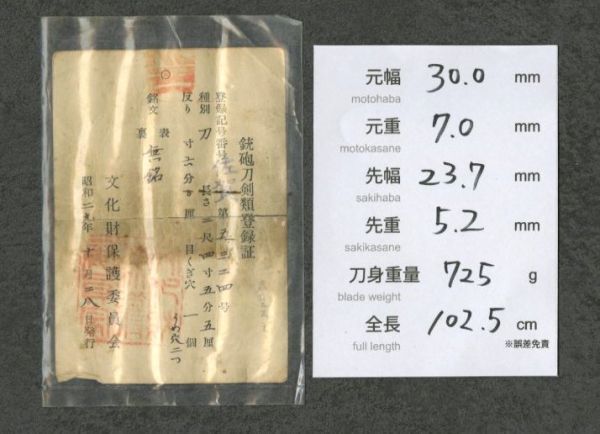 銃砲刀剣類登録証
登録記号番号 佐賀 第五三二四号
種別 刀
長さ 二尺四寸五分五厘
反り 寸六分 厘
目くぎ穴 一個
うめ穴二つ
銘文 表 裏 無銘
昭和二九年十一月二八日発行
文化財保護委員会
元幅 30.0 mm
motohaba
元重 7.0 mm
motokasane
先幅 23.7 mm
sakihaba
先重 5.2 mm
sakikasane
刀身重量 725 g
blade weight
全長 102.5 cm
full length
※誤差免責